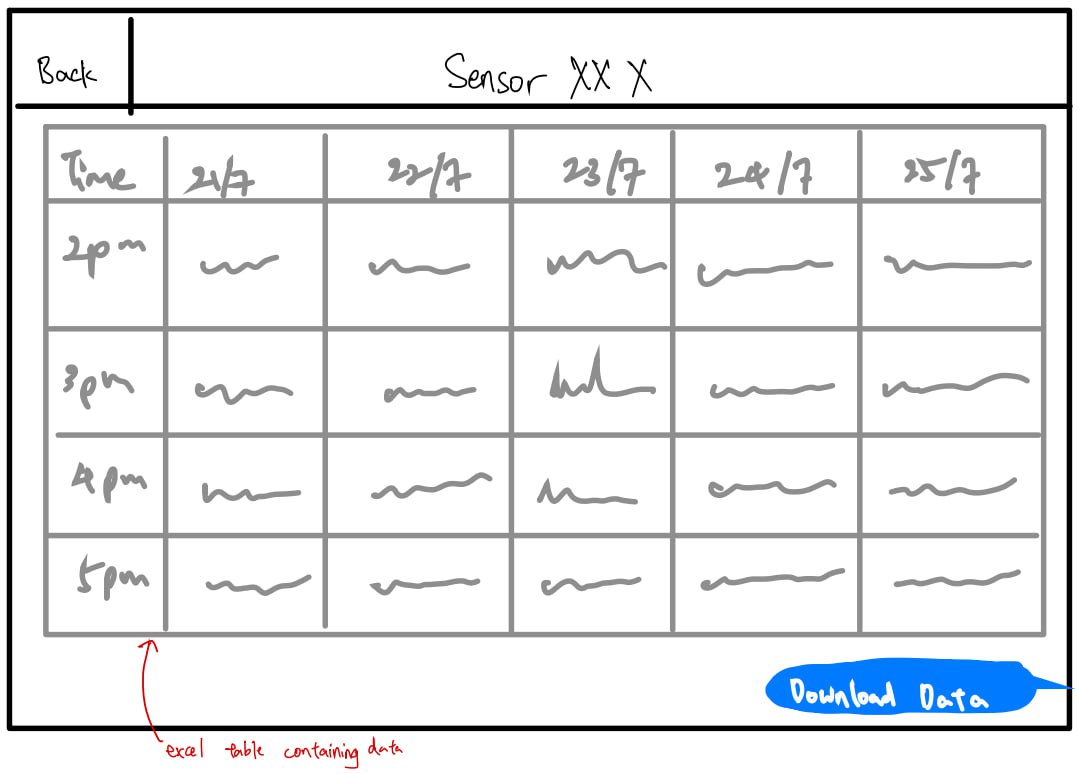 Back
Sensor XX X
Time 21/7 22/7 23/7 24/7 25/7
2pm
3pm
4pm
5pm
Download Data
excel table containing data